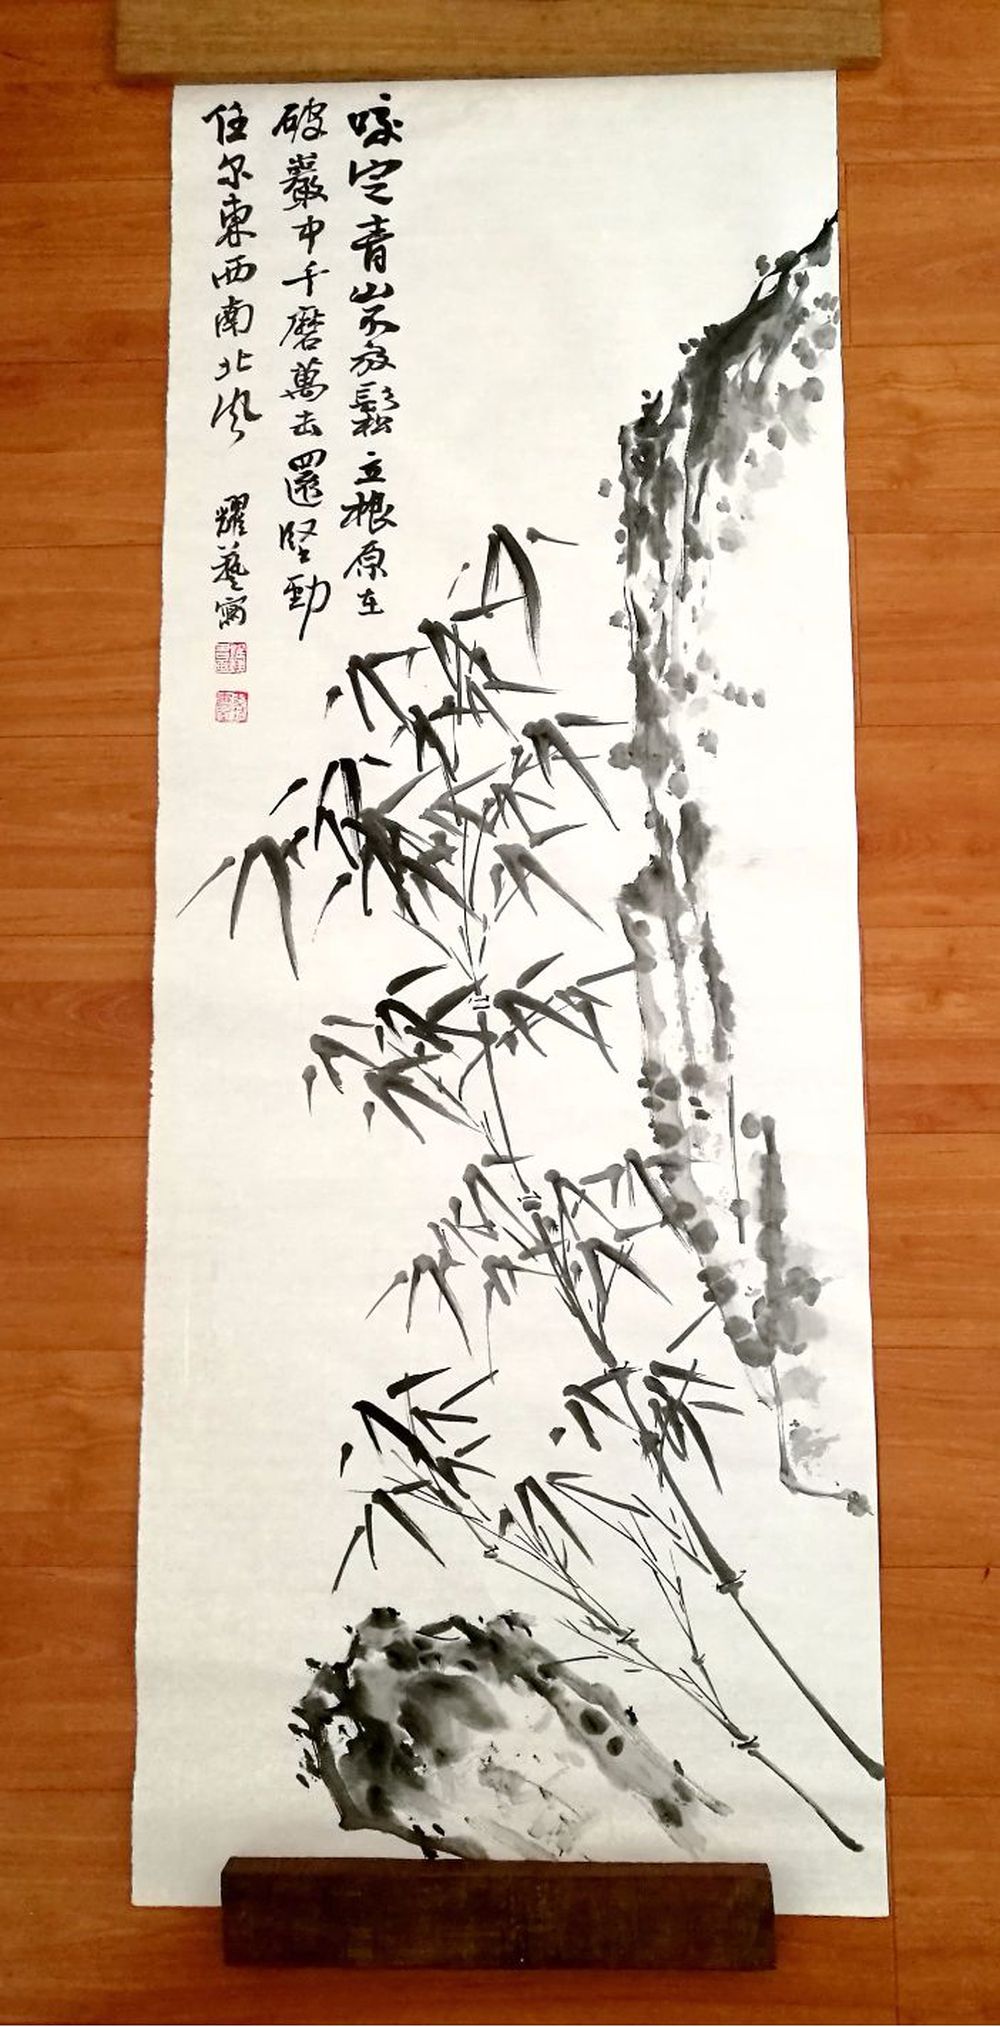 咬定青山不放鬆立根原在
破巖中千磨萬击還堅勁
任尔東西南北風
耀藝寫